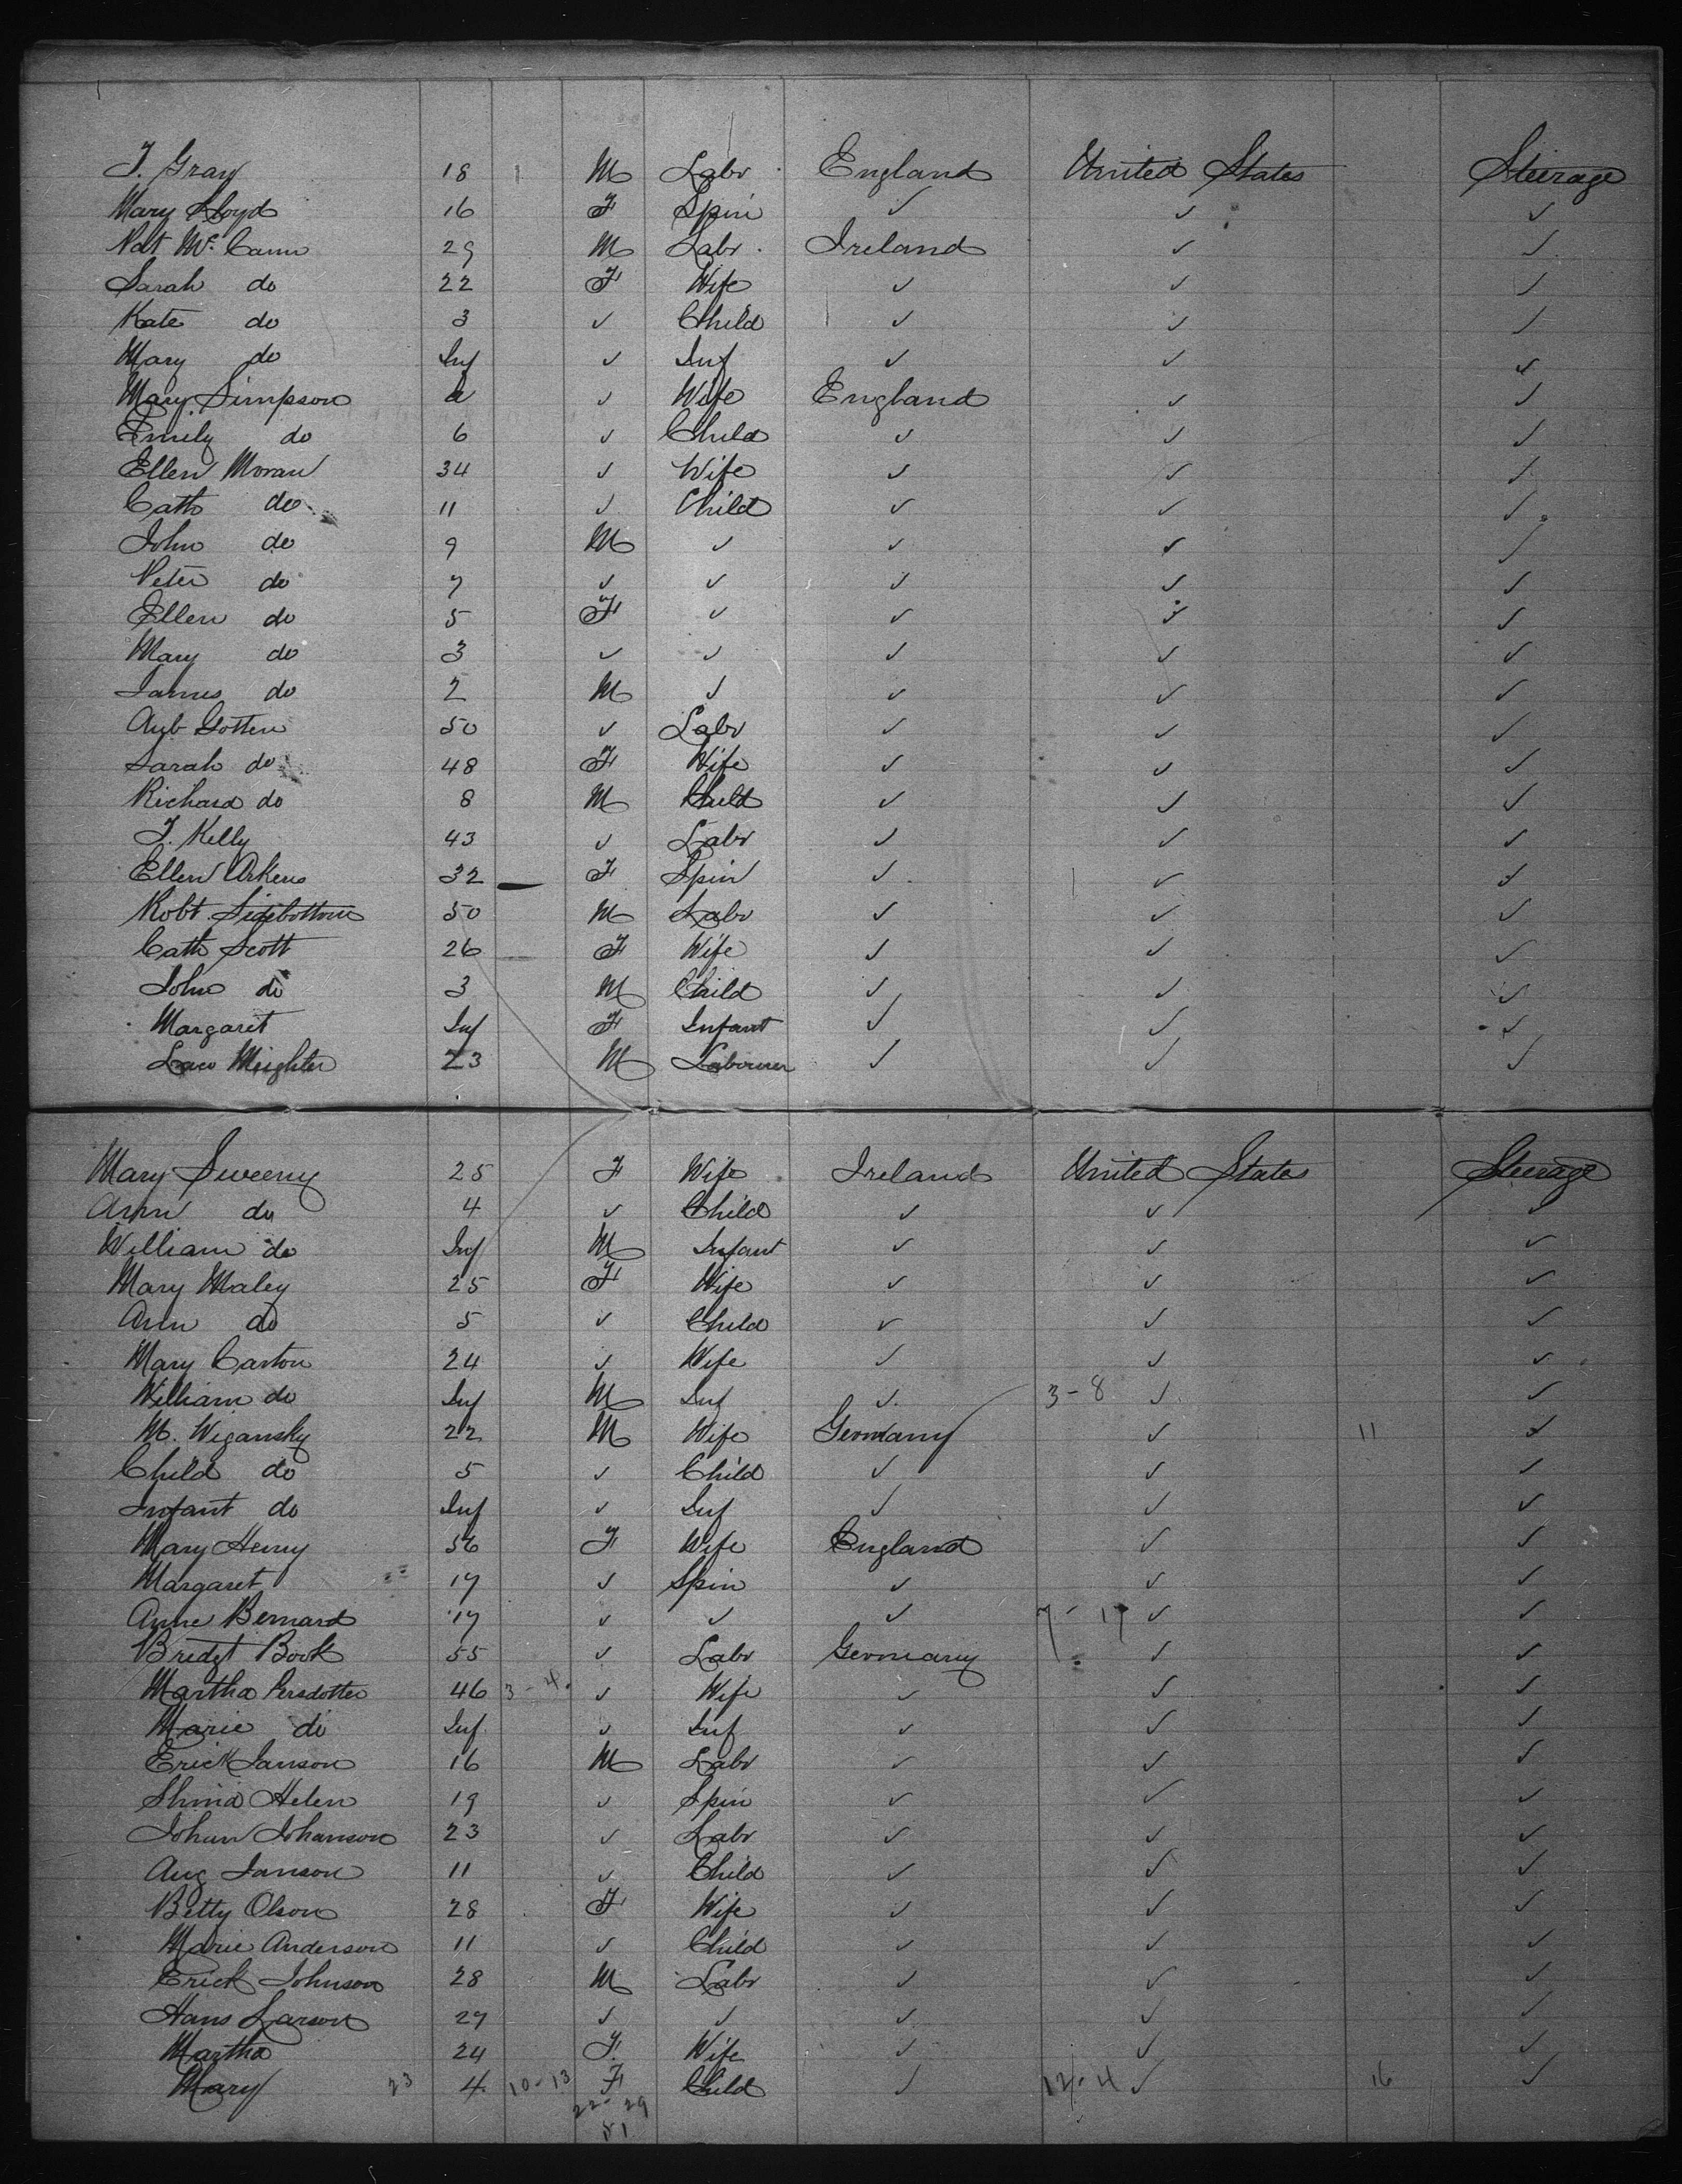 T. Gray 18 M Labr England United States Steerage
Mary Lloyd 16 F Spin ✓ ✓ ✓
Pat Mc. Cann 29 M Labr. Ireland ✓ ✓
Sarah do 22 F Wife ✓ ✓ ✓
Kate do 3 ✓ Child ✓ ✓ ✓
Mary do Inf ✓ Inf ✓ ✓ ✓
Mary Simpson ✓ Wife England ✓ ✓
Emily do 6 ✓ Child ✓ ✓ ✓
Ellen Moran 34 ✓ Wife ✓ ✓ ✓
Cath do 11 ✓ Child ✓ ✓ ✓
John do 9 M ✓ ✓ ✓ ✓
Peter do 7 ✓ ✓ ✓ ✓ ✓
Ellen do 5 F ✓ ✓ ✓ ✓
Mary do 3 ✓ ✓ ✓ ✓ ✓
James do 2 M ✓ ✓ ✓ ✓
50 ✓ Labr ✓ ✓ ✓
Sarah do 48 F Wife ✓ ✓ ✓
Richard do 8 M Child ✓ ✓ ✓
T. Kelly 43 ✓ Labr ✓ ✓ ✓
Ellen Arkens 32 F Spin ✓ ✓ ✓
Robt Sidebottom 50 M Labr ✓ ✓ ✓
Cath Scott 26 F Wife ✓ ✓ ✓
John do 3 M Child ✓ ✓ ✓
Margaret Inf F Infant ✓ ✓ ✓
23 M Labourer ✓ ✓ ✓
Mary Sweeny 25 F Wife Ireland United States Steerage
Ann do 4 ✓ Child ✓ ✓ ✓
William do Inf M Infant ✓ ✓ ✓
Mary Maley 25 F Wife ✓ ✓ ✓
Ann do 5 ✓ Child ✓ ✓ ✓
Mary Carton 24 ✓ Wife ✓ ✓ ✓
William do Inf M Inf ✓ 3-8 ✓ ✓
M. Wigansky 22 M Wife Germany ✓ 11 ✓
Child do 5 ✓ Child ✓ ✓ ✓
Infant do Inf ✓ Inf ✓ ✓ ✓
Mary Henry 56 F Wife England ✓ ✓
Margaret 17 ✓ Spin ✓ ✓ ✓
Anne Bernard 17 ✓ ✓ ✓ ✓ ✓
Bridgt Book 55 ✓ Labr Germany ✓ ✓
Martha Persdotter 46 3-4 ✓ Wife ✓ ✓ ✓
Marie do Inf ✓ Inf ✓ ✓ ✓
Erick Janson 16 M Labr ✓ ✓ ✓
Helen 19 ✓ Spin ✓ ✓ ✓
Johan Johanson 23 ✓ Labr ✓ ✓ ✓
Aug Janson 11 ✓ Child ✓ ✓ ✓
Betty Olson 28 F Wife ✓ ✓ ✓
Marie Anderson 11 ✓ Child ✓ ✓ ✓
Erick Johnson 28 M Labr ✓ ✓ ✓
Hans Larson 27 ✓ ✓ ✓ ✓ ✓
Martha 24 F. Wife ✓ ✓ ✓
Mary 23 4 10-13 F Child ✓ 12-4 ✓ 16 ✓
22-29
51